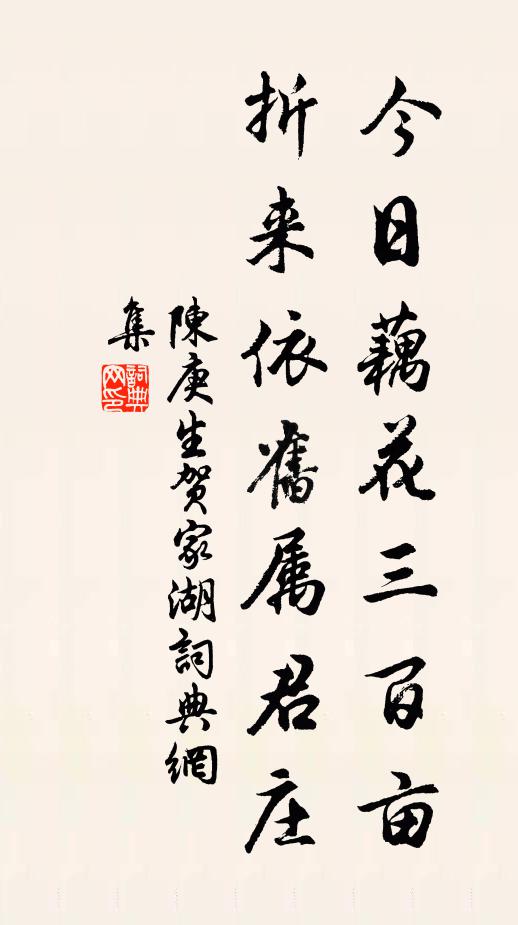 今日藕花三百亩
折来依舊属君庄
陳庚生贺家湖詞典網
集
詞典网印